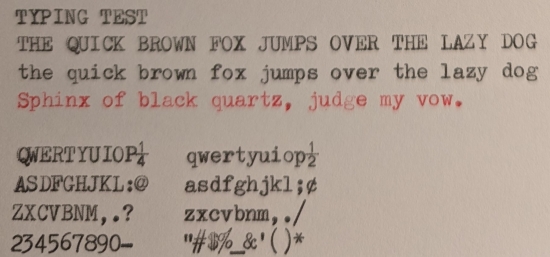 TYPING TEST
THE QUICK BROWN FOX JUMPS OVER THE LAZY DOG
the quick brown fox jumps over the lazy dog
Sphinx of black quartz, judge my vow.
QWERTYUIOP¼ qwertyuiop½
ASDFGHJKL:@ asdfghjkl;¢
ZXCVBNM,.? zxcvbnm,./
234567890- "#$%_&'()*